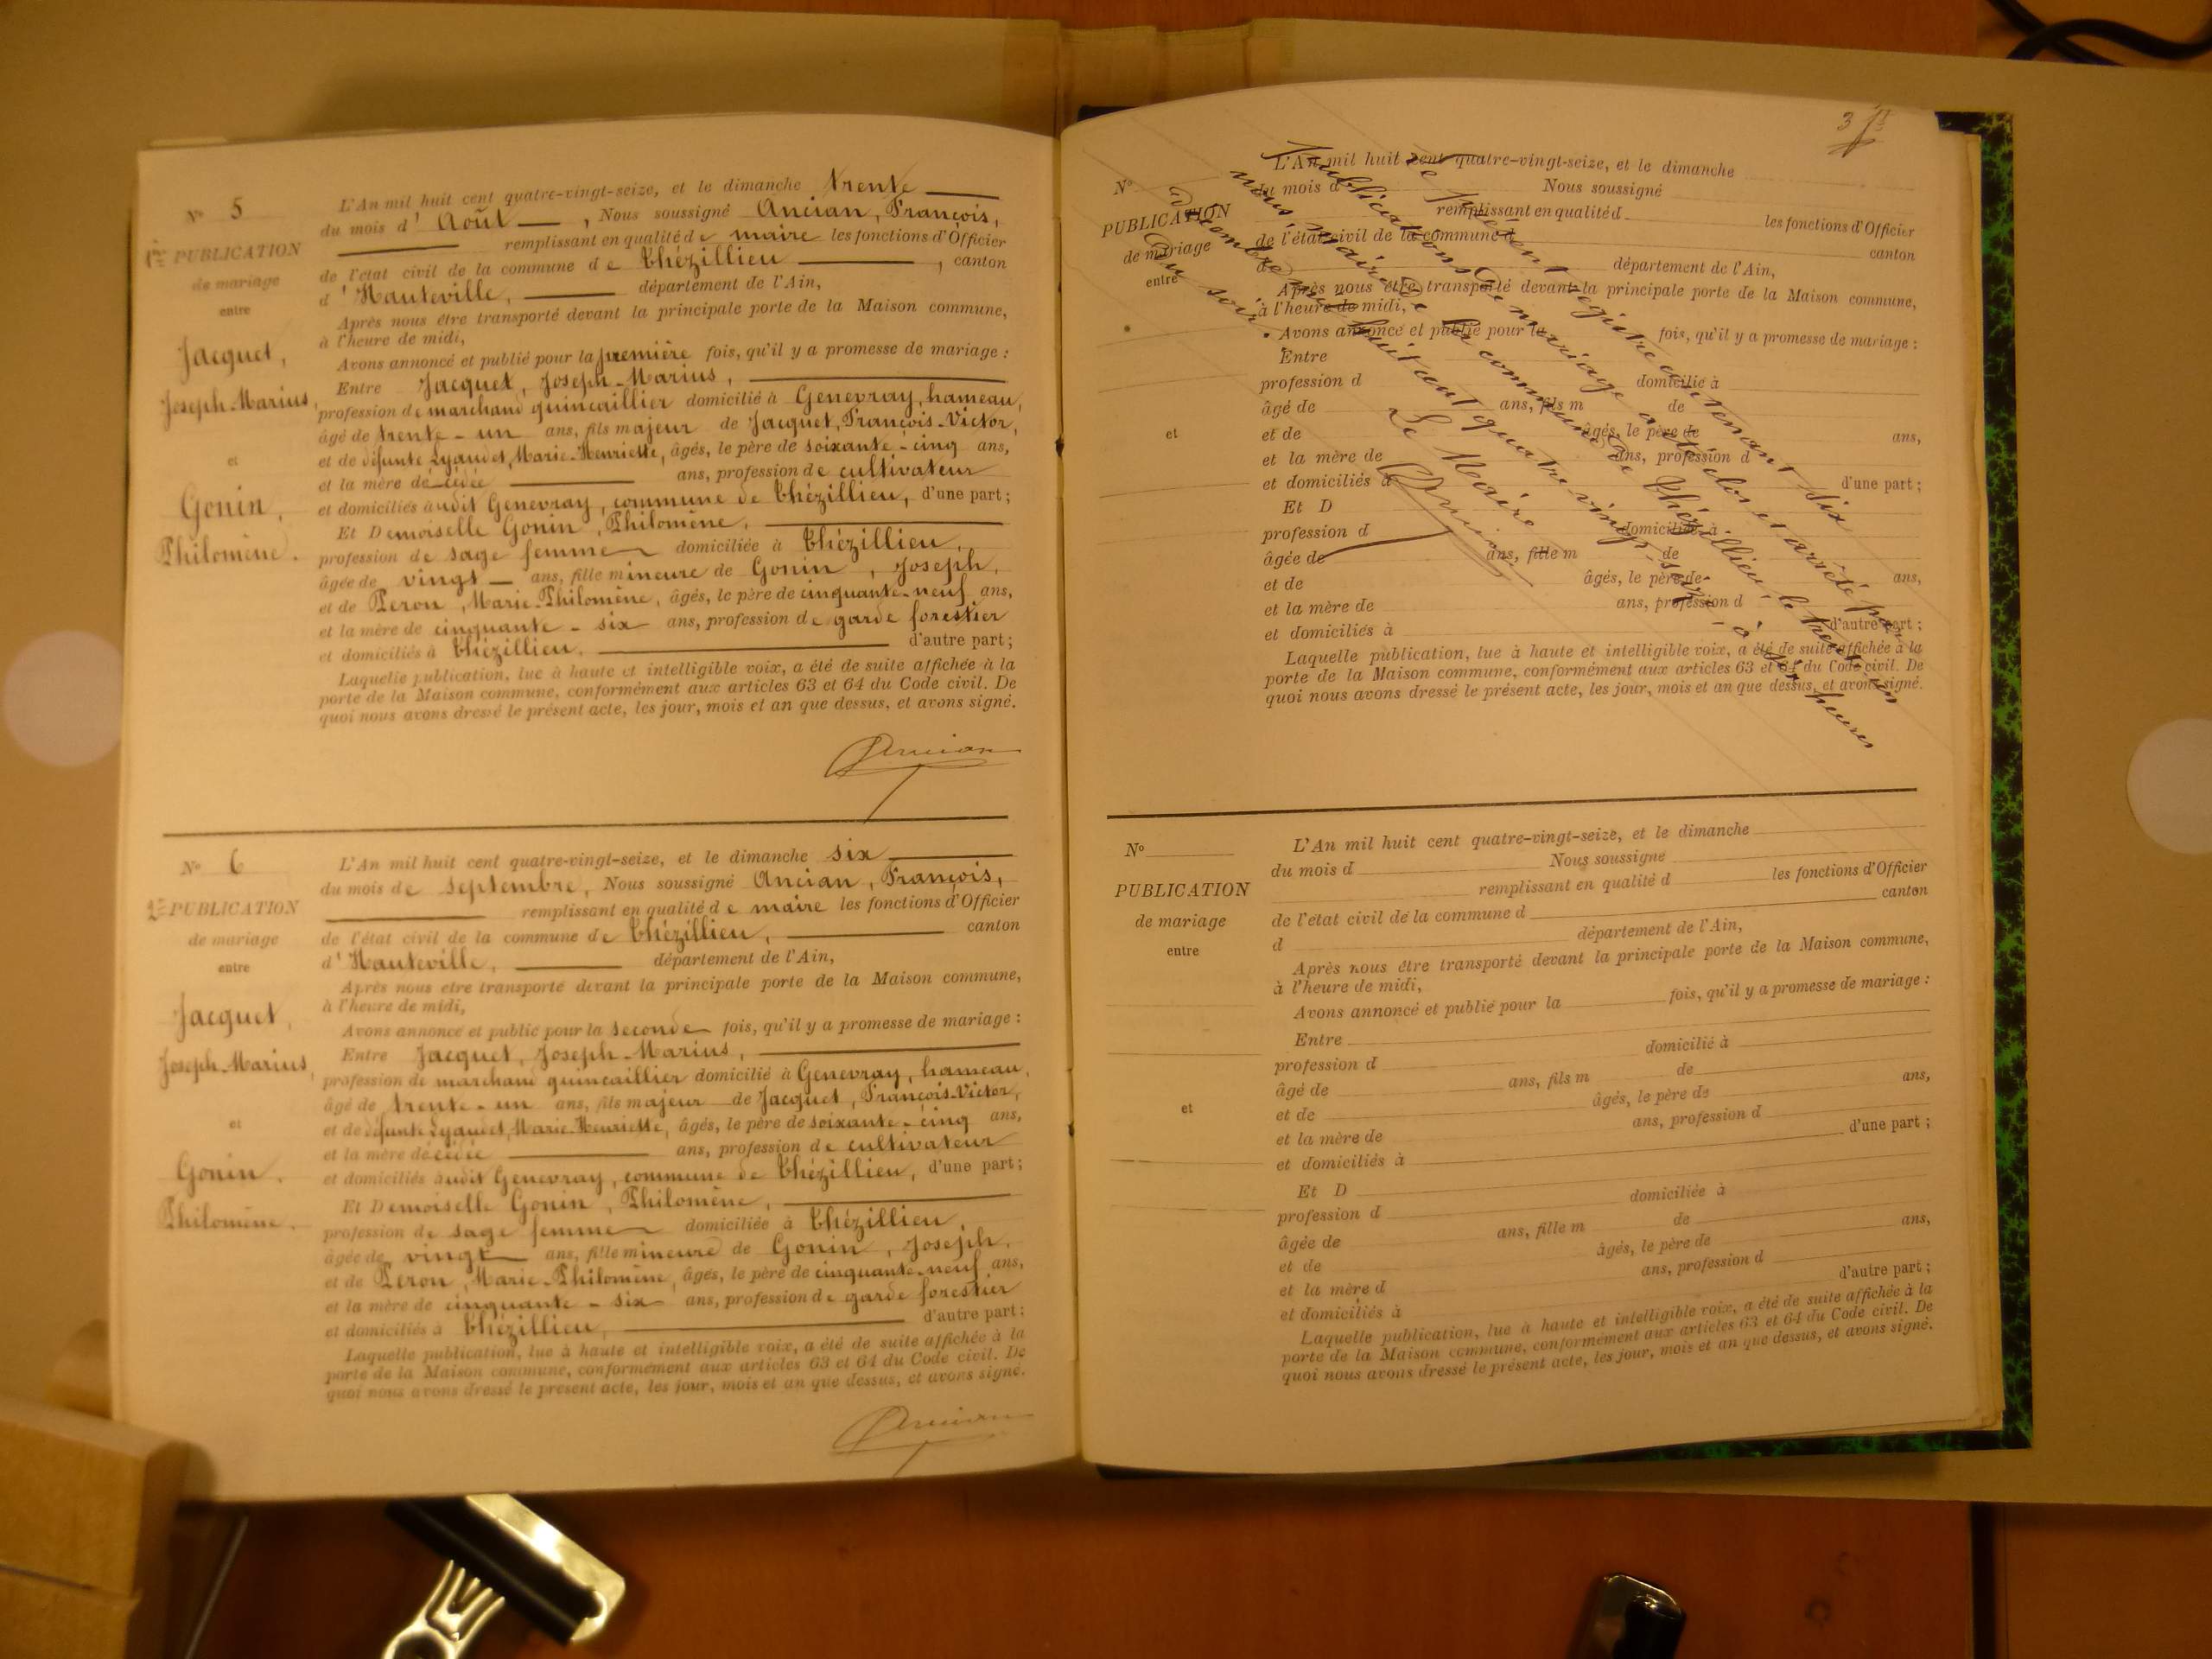 N° 5
1ère PUBLICATION
de mariage
entre
Jacquet,
Joseph-Marius,
et
Gonin,
Philomène.
L'An mil huit cent quatre-vingt-seize, et le dimanche trente
du mois d' Août, Nous soussigné Ancian, François,
remplissant en qualité de maire les fonctions d'Officier
de l'état civil de la commune de Thézillieu, canton
d' Hauteville, département de l'Ain,
Après nous être transporté devant la principale porte de la Maison commune,
à l'heure de midi,
Avons annoncé et publié pour la première fois, qu'il y a promesse de mariage :
Entre Jacquet, Joseph-Marius,
profession de marchand quincaillier domicilié à Genevray, hameau,
âgé de trente-un ans, fils majeur de Jacquet, François-Victor,
et de défunte Lyaudet, Marie-Henriette, âgés, le père de soixante-cinq ans,
et la mère décédée ans, profession de cultivateur
et domiciliés audit Genevray, commune de Thézillieu, d'une part ;
Et Demoiselle Gonin, Philomène,
profession de sage femme domiciliée à Thézillieu,
âgée de vingt ans, fille mineure de Gonin, Joseph,
et de Peron, Marie-Philomène, âgés, le père de cinquante-neuf ans,
et la mère de cinquante-six ans, profession de garde forestier
et domiciliés à Thézillieu, d'autre part ;
Laquelle publication, lue à haute et intelligible voix, a été de suite affichée à la
porte de la Maison commune, conformément aux articles 63 et 64 du Code civil. De
quoi nous avons dressé le présent acte, les jour, mois et an que dessus, et avons signé.
Ancian
N° 6
2e PUBLICATION
de mariage
entre
Jacquet,
Joseph-Marius,
et
Gonin,
Philomène.
L'An mil huit cent quatre-vingt-seize, et le dimanche six
du mois de septembre, Nous soussigné Ancian, François,
remplissant en qualité de maire les fonctions d'Officier
de l'état civil de la commune de Thézillieu, canton
d' Hauteville, département de l'Ain,
Après nous être transporté devant la principale porte de la Maison commune,
à l'heure de midi,
Avons annoncé et publié pour la seconde fois, qu'il y a promesse de mariage :
Entre Jacquet, Joseph-Marius,
profession de marchand quincaillier domicilié à Genevray, hameau,
âgé de trente-un ans, fils majeur de Jacquet, François-Victor,
et de défunte Lyaudet, Marie-Henriette, âgés, le père de soixante-cinq ans,
et la mère décédée ans, profession de cultivateur
et domiciliés audit Genevray, commune de Thézillieu, d'une part ;
Et Demoiselle Gonin, Philomène,
profession de sage femme domiciliée à Thézillieu,
âgée de vingt ans, fille mineure de Gonin, Joseph,
et de Peron, Marie-Philomène, âgés, le père de cinquante-neuf ans,
et la mère de cinquante-six ans, profession de garde forestier
et domiciliés à Thézillieu, d'autre part ;
Laquelle publication, lue à haute et intelligible voix, a été de suite affichée à la
porte de la Maison commune, conformément aux articles 63 et 64 du Code civil. De
quoi nous avons dressé le présent acte, les jour, mois et an que dessus, et avons signé.
Ancian
3
N°
PUBLICATION
de mariage
entre
et
L'An mil huit cent quatre-vingt-seize, et le dimanche
du mois d Nous soussigné
remplissant en qualité d les fonctions d'Officier
de l'état civil de la commune d canton
d département de l'Ain,
Après nous être transporté devant la principale porte de la Maison commune,
à l'heure de midi,
Avons annoncé et publié pour la fois, qu'il y a promesse de mariage :
Entre
profession d domicilié à
âgé de ans, fils m de
et de âgés, le père de ans,
et la mère de ans, profession d
et domiciliés à d'une part ;
Et D
profession d domiciliée à
âgée de ans, fille m de
et de âgés, le père de ans,
et la mère de ans, profession d
et domiciliés à d'autre part ;
Laquelle publication, lue à haute et intelligible voix, a été de suite affichée à la
porte de la Maison commune, conformément aux articles 63 et 64 du Code civil. De
quoi nous avons dressé le présent acte, les jour, mois et an que dessus, et avons signé.
Le présent registre contenant six
publications de mariage a été clos et arrêté par
nous, maire de la commune de Thézillieu, le trente un
décembre mil huit cent quatre vingt-seize, à six heures
du soir.
Le Maire
Ancian
N°
PUBLICATION
de mariage
entre
et
L'An mil huit cent quatre-vingt-seize, et le dimanche
du mois d Nous soussigné
remplissant en qualité d les fonctions d'Officier
de l'état civil de la commune d canton
d département de l'Ain,
Après nous être transporté devant la principale porte de la Maison commune,
à l'heure de midi,
Avons annoncé et publié pour la fois, qu'il y a promesse de mariage :
Entre
profession d domicilié à
âgé de ans, fils m de
et de âgés, le père de ans,
et la mère de ans, profession d
et domiciliés à d'une part ;
Et D
profession d domiciliée à
âgée de ans, fille m de
et de âgés, le père de ans,
et la mère d ans, profession d
et domiciliés à d'autre part ;
Laquelle publication, lue à haute et intelligible voix, a été de suite affichée à la
porte de la Maison commune, conformément aux articles 63 et 64 du Code civil. De
quoi nous avons dressé le présent acte, les jour, mois et an que dessus, et avons signé.